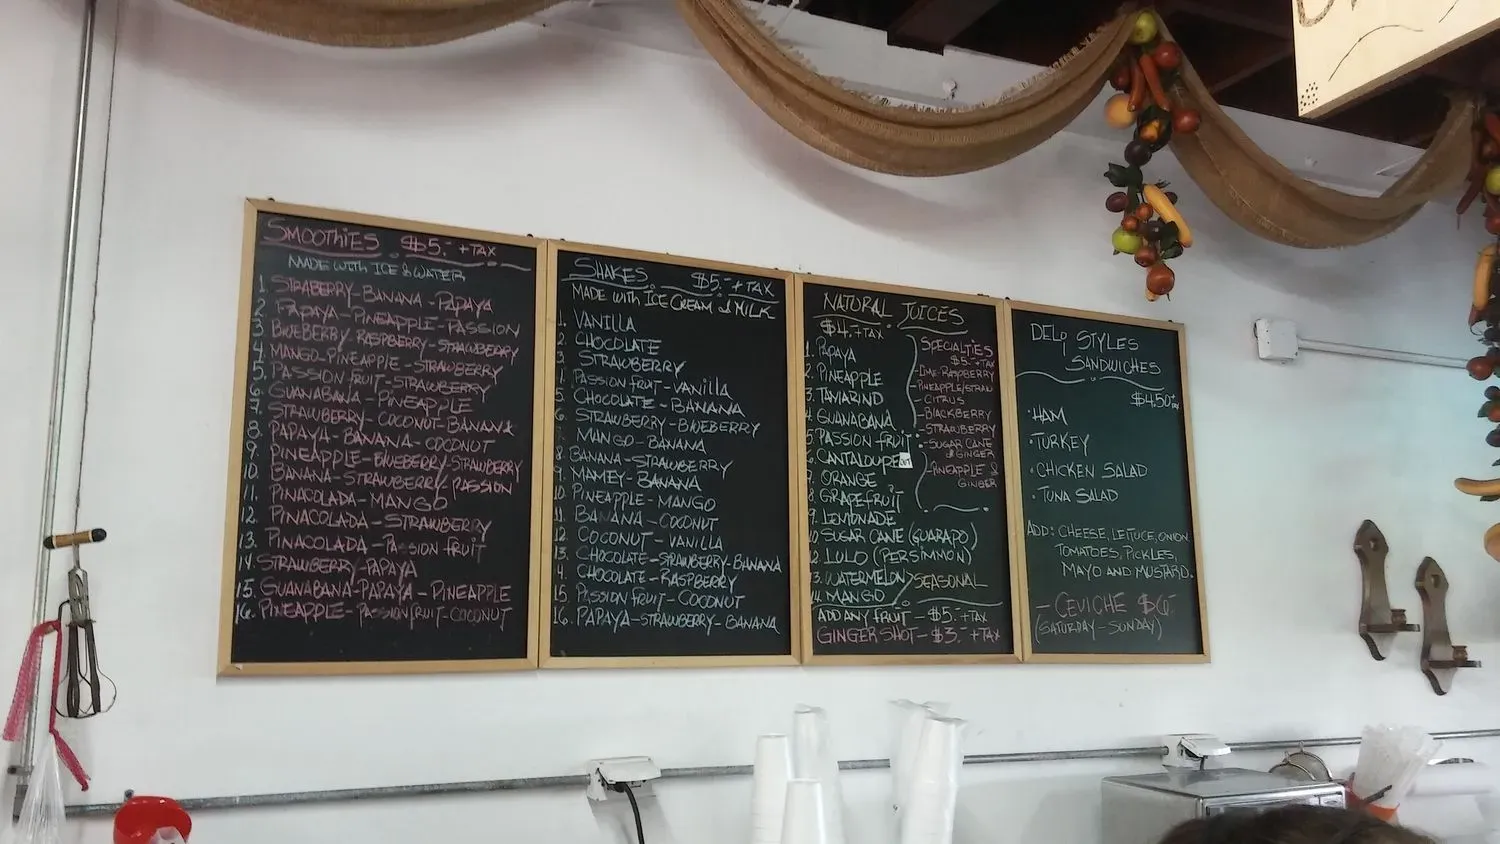 SMOOTHIES $5.- + TAX
MADE WITH ICE & WATER
1. STRABERRY-BANANA-PAPAYA
2. PAPAYA-PINEAPPLE-PASSION
3. BLUEBERRY-RASPBERRY-STRAWBERRY
4. MANGO-PINEAPPLE-STRAWBERRY
5. PASSION FRUIT-STRAWBERRY
6. GUANABANA-PINEAPPLE
7. STRAWBERRY-COCONUT-BANANA
8. PAPAYA-BANANA-COCONUT
9. PINEAPPLE-BLUEBERRY-STRAWBERRY
10. BANANA-STRAWBERRY-PASSION
11. PINACOLADA-MANGO
12. PINACOLADA-STRAWBERRY
13. PINACOLADA-PASSION FRUIT
14. STRAWBERRY-PAPAYA
15. GUANABANA-PAPAYA-PINEAPPLE
16. PINEAPPLE-PASSION FRUIT-COCONUT
SHAKES $5.- + TAX
MADE WITH ICE CREAM & MILK
1. VANILLA
2. CHOCOLATE
3. STRAWBERRY
PASSION FRUIT-VANILLA
5. CHOCOLATE-BANANA
6. STRAWBERRY-BLUEBERRY
MANGO-BANANA
8. BANANA-STRAWBERRY
9. MAMEY-BANANA
10. PINEAPPLE-MANGO
11. BANANA-COCONUT
12. COCONUT-VANILLA
13. CHOCOLATE-STRAWBERRY-BANANA
4. CHOCOLATE-RASPBERRY
15. PASSION FRUIT-COCONUT
16. PAPAYA-STRAWBERRY-BANANA
NATURAL JUICES
$4.- + TAX
1. PAPAYA
2. PINEAPPLE
3. TAMARIND
4. GUANABANA
5. PASSION FRUIT
6. CANTALOUPE
7. ORANGE
8. GRAPEFRUIT
9. LEMONADE
10 SUGAR CANE (GUARAPO)
12. LULO (PERSIMMON)
13. WATERMELON SEASONAL
14. MANGO
ADD ANY FRUIT - $5.- + TAX
GINGER SHOT - $3.- + TAX
SPECIALTIES
$5.- + TAX
-LIME-RASPBERRY
-PINEAPPLE/STRAW
-CITRUS
-BLACKBERRY
-STRAWBERRY
-SUGAR CANE
& GINGER
-PINEAPPLE &
GINGER
DELY STYLES
SANDWICHES
$4.50 + TAX
·HAM
·TURKEY
·CHICKEN SALAD
·TUNA SALAD
ADD: CHEESE, LETUCE, ONION
TOMATOES, PICKLES,
MAYO AND MUSTARD.
- CEVICHE $6.-
(SATURDAY-SUNDAY)